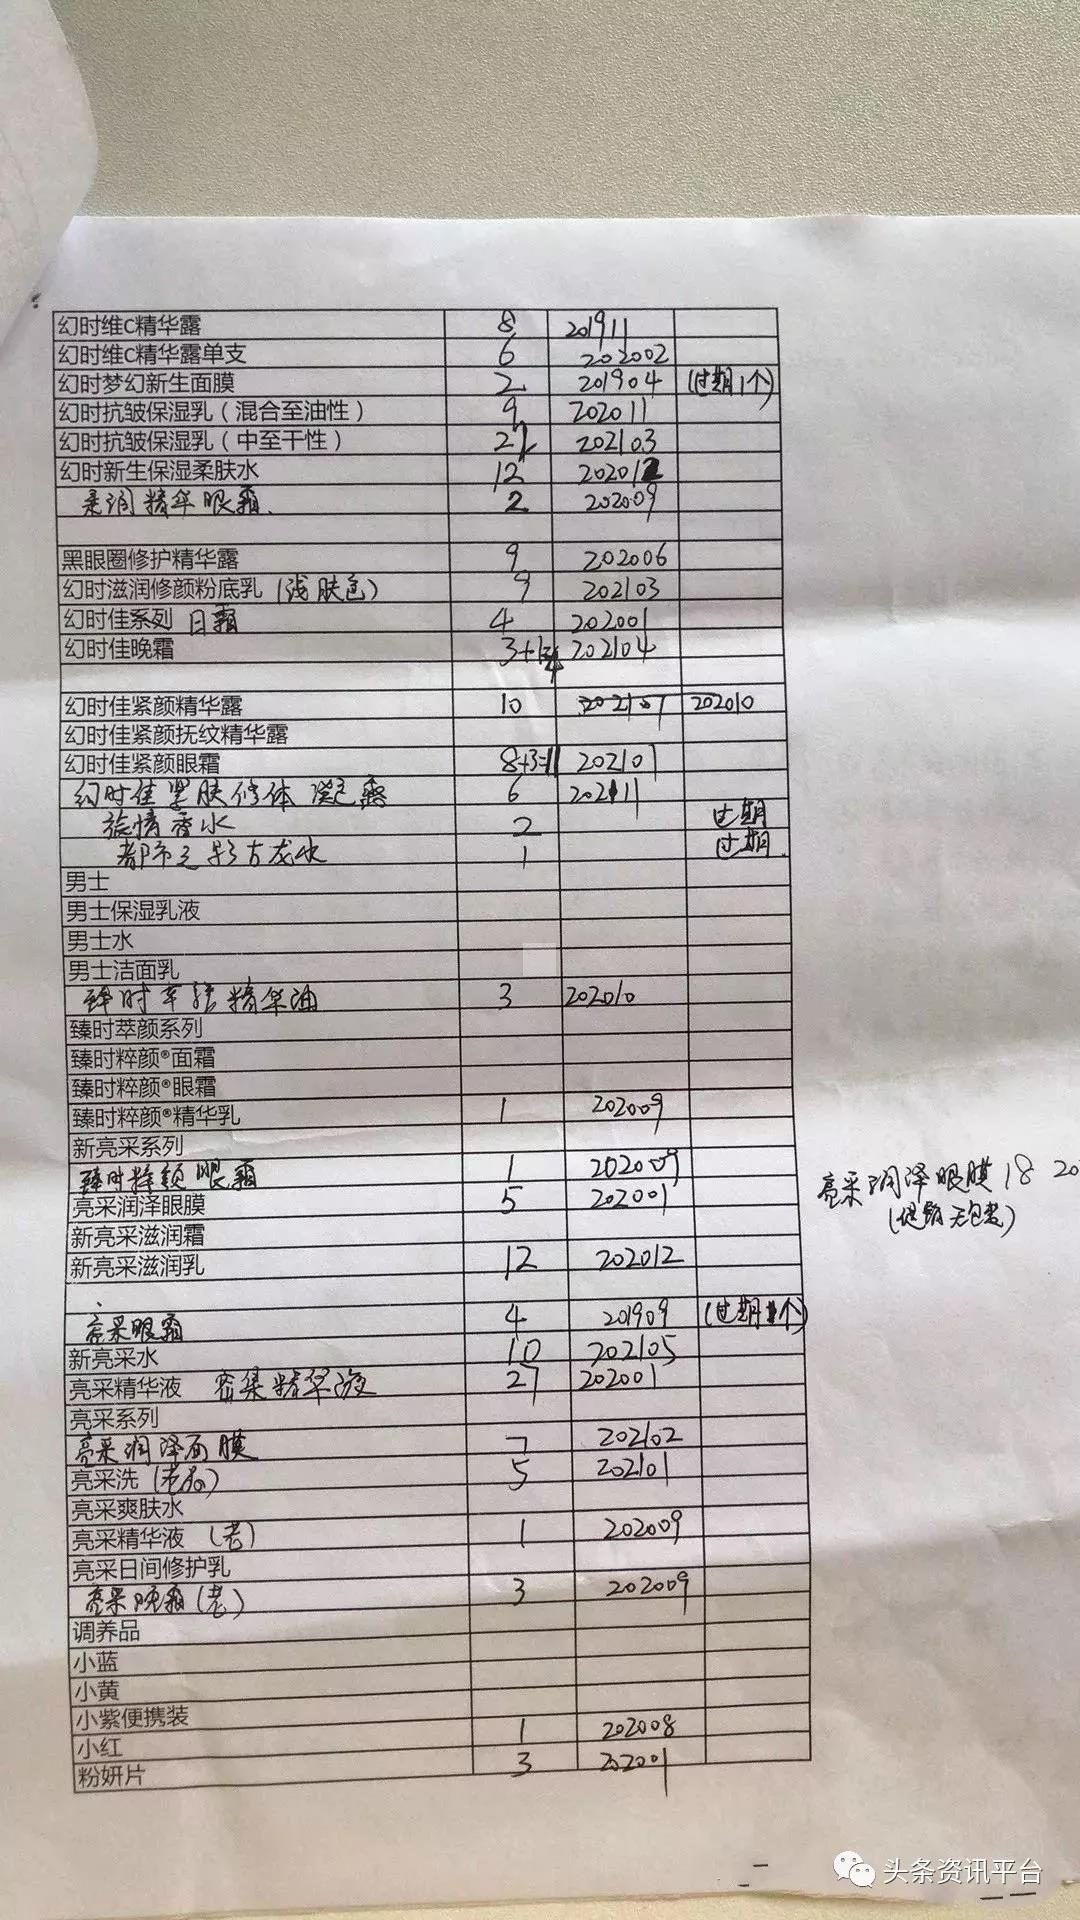 幻时维C精华露 8 201911
幻时维C精华露单支 6 202002
幻时梦幻新生面膜 2 201904 (过期1个)
幻时抗皱保湿乳（混合至油性） 9 202011
幻时抗皱保湿乳（中至干性） 2 202103
幻时新生保湿柔肤水 12 202012
柔润精华眼霜 2 202009
黑眼圈修护精华露 9 202006
幻时滋润修颜粉底乳 (浅肤色) 9 202103
幻时佳系列 日霜 4 202001
幻时佳晚霜 3+1 202104
幻时佳紧颜精华露 10 202107 202010
幻时佳紧颜抚纹精华露
幻时佳紧颜眼霜 8+3=11 202101
幻时佳紧肤修体 霜 6 202111
旅情香水 2 过期
都市之影古龙水 1 过期
男士
男士保湿乳液
男士水
男士洁面乳
臻时 精华油 3 202010
臻时萃颜系列
臻时粹颜®面霜
臻时粹颜®眼霜
臻时粹颜®精华乳 1 202009
新亮采系列
臻时粹颜眼霜 1 202009
亮采润泽眼膜 5 202001
亮采润泽眼膜 18 20
(促销无包装)
新亮采滋润霜
新亮采滋润乳 12 202012
亮采眼霜 4 201909 (过期1个)
新亮采水 10 202105
亮采精华液 密集精华液 27 202001
亮采系列
亮采润泽面膜 7 202102
亮采洗 5 202101
亮采爽肤水
亮采精华液 (老) 1 202009
亮采日间修护乳
亮采晚霜(老) 3 202009
调养品
小蓝
小黄
小紫便携装 1 202008
小红 3 202001
粉妍片
头条资讯平台